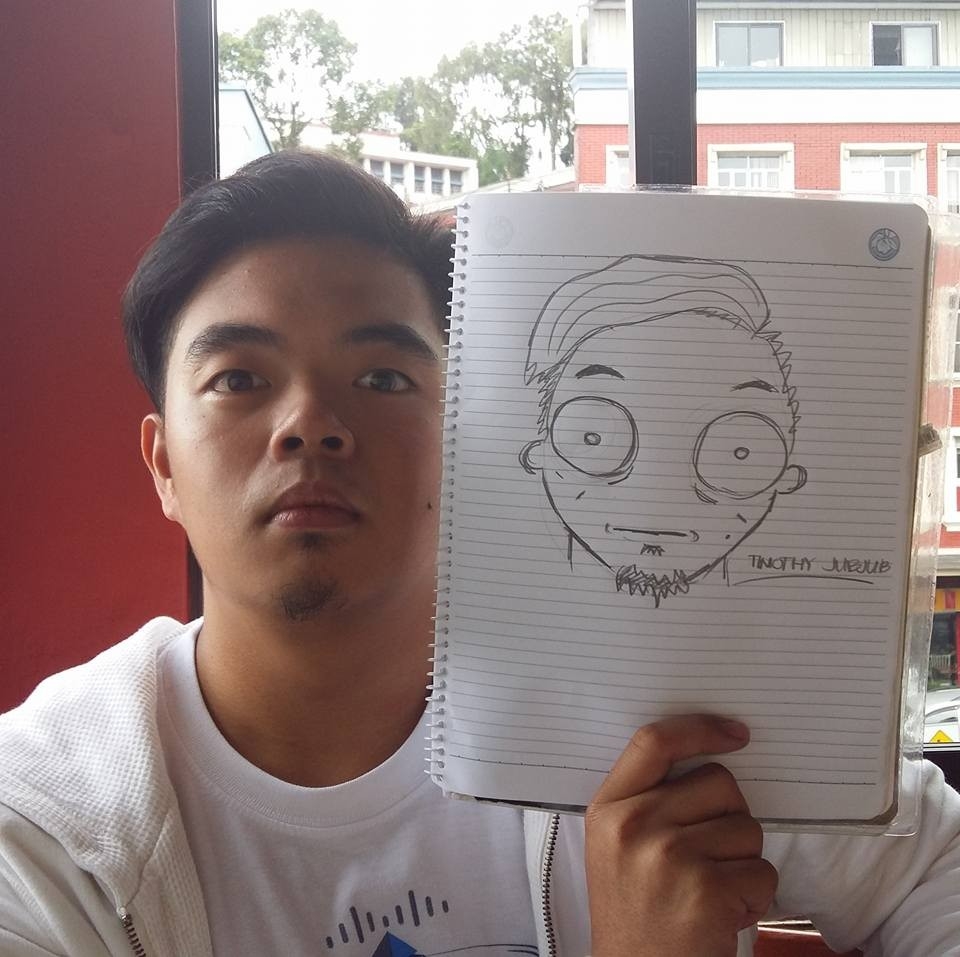 TIMOTHY JUBJUB